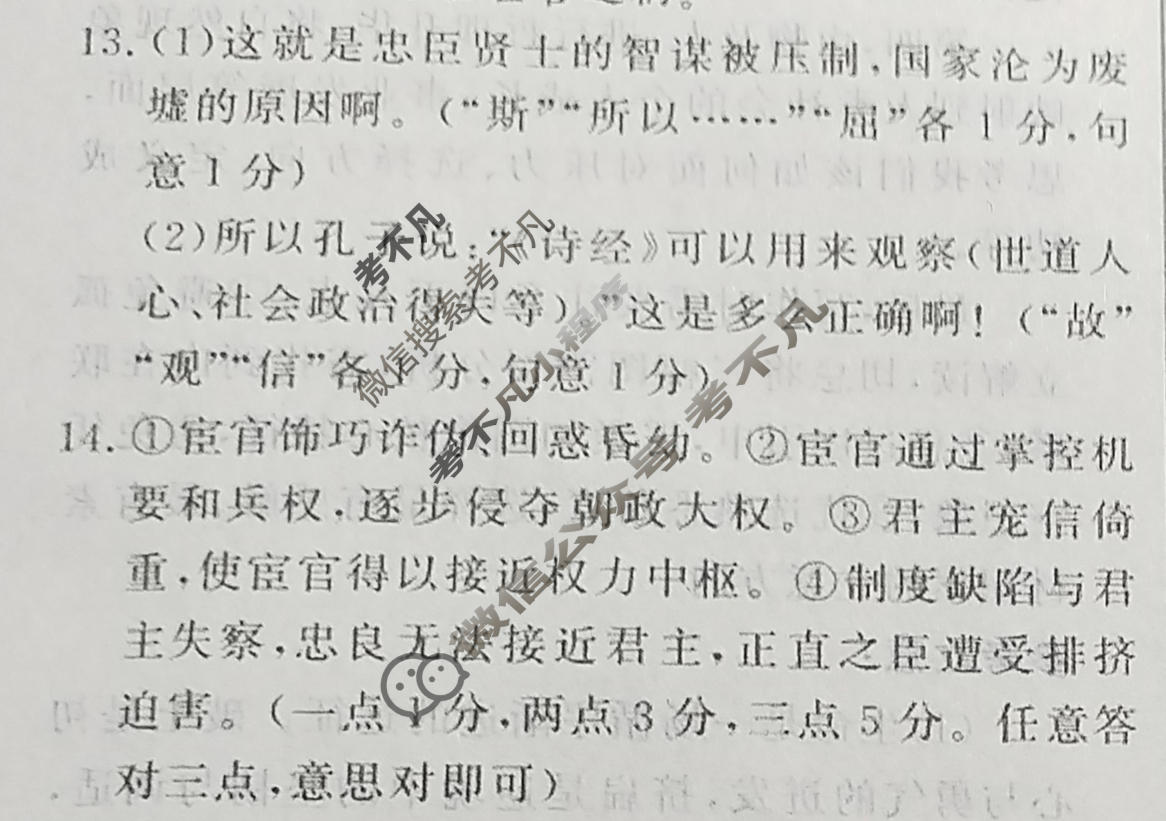 13.(1)这就是忠臣贤士的智谋被压制,国家沦为废
墟的原因啊。(“斯”“所以……”“屈”各1分,句
意1分)
(2)所以孔子说:“《诗经》可以用来观察(世道人
心、社会政治得失等)”这是多么正确啊!(“故”
“观”“信”各1分,句意1分)
14.①宦官饰巧诈伪,回惑昏幼。②宦官通过掌控机
要和兵权,逐步侵夺朝政大权。③君主宠信倚
重,使宦官得以接近权力中枢。④制度缺陷与君
主失察,忠良无法接近君主,正直之臣遭受排挤
迫害。(一点1分,两点3分,三点5分。任意答
对三点,意思对即可)
考不凡
微信搜索考不凡
考不凡小程序
微信公众号考不凡